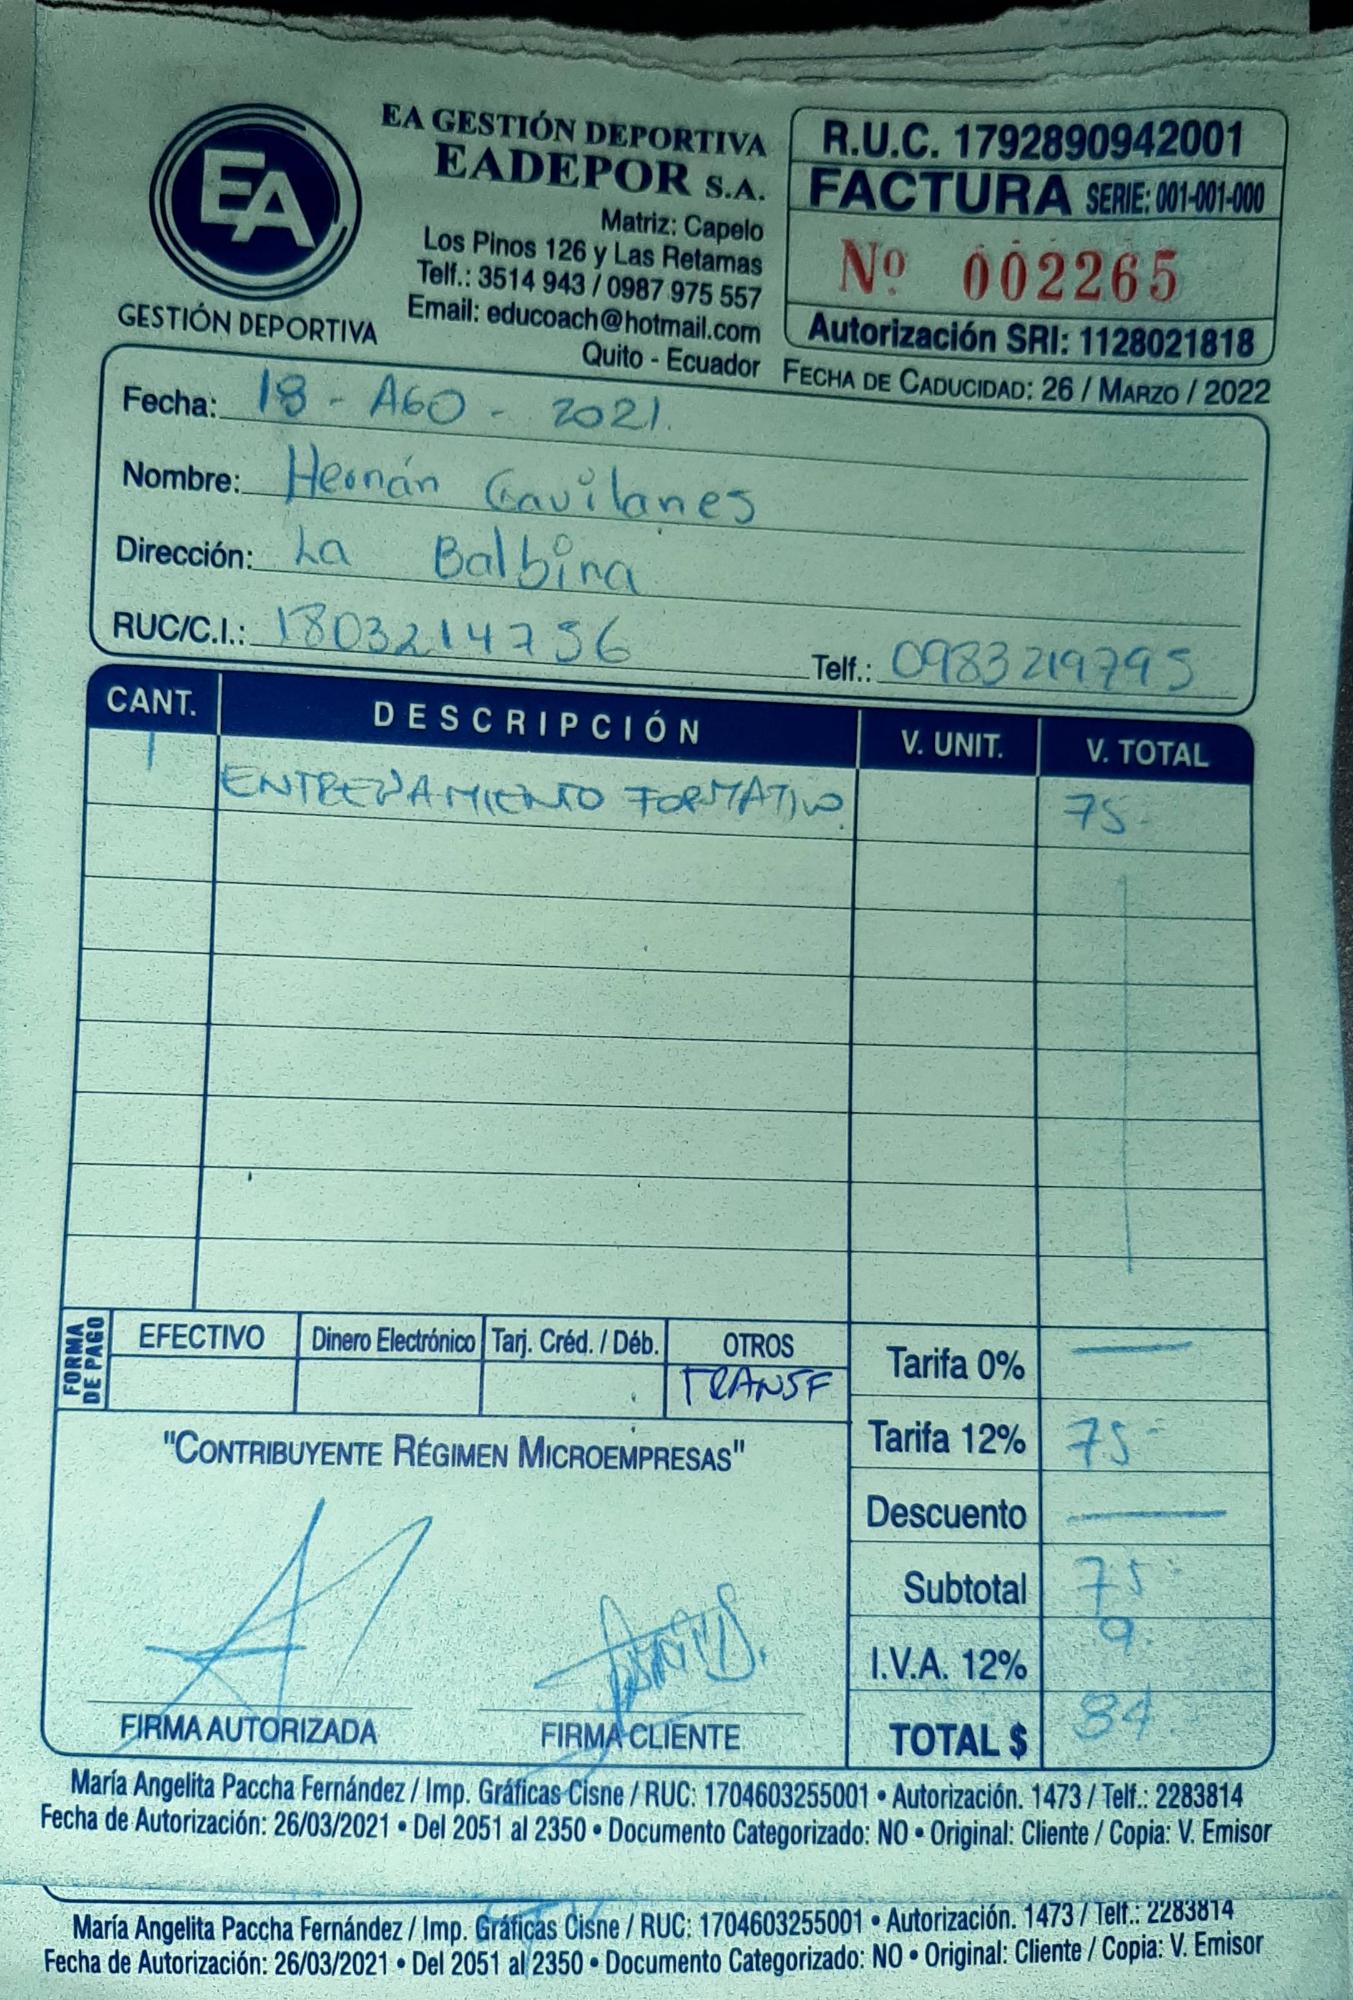 EA
GESTIÓN DEPORTIVA
EA GESTIÓN DEPORTIVA
EADEPOR S.A.
Matriz: Capelo
Los Pinos 126 y Las Retamas
Telf.: 3514 943 / 0987 975 557
Email: educoach@hotmail.com
Quito - Ecuador
R.U.C. 1792890942001
FACTURA SERIE: 001-001-000
Nº 002265
Autorización SRI: 1128021818
FECHA DE CADUCIDAD: 26 / MARZO / 2022
Fecha: 18 - AGO - 2021.
Nombre: Hernán Gavilanes
Dirección: La Balbina
RUC/C.I.: 1803214756 Telf.: 0983219795
CANT. DESCRIPCIÓN V. UNIT. V. TOTAL
1 ENTRENAMIENTO FORMATIVO. 75-
FORMA DE PAGO
EFECTIVO Dinero Electrónico Tarj. Créd. / Déb. OTROS
TRANSF
Tarifa 0% —
Tarifa 12% 75-
Descuento —
Subtotal 75-
I.V.A. 12% 9.
TOTAL $ 84.
"CONTRIBUYENTE RÉGIMEN MICROEMPRESAS"
FIRMA AUTORIZADA FIRMA CLIENTE
María Angelita Paccha Fernández / Imp. Gráficas Cisne / RUC: 1704603255001 • Autorización. 1473 / Telf.: 2283814
Fecha de Autorización: 26/03/2021 • Del 2051 al 2350 • Documento Categorizado: NO • Original: Cliente / Copia: V. Emisor
María Angelita Paccha Fernández / Imp. Gráficas Cisne / RUC: 1704603255001 • Autorización. 1473 / Telf.: 2283814
Fecha de Autorización: 26/03/2021 • Del 2051 al 2350 • Documento Categorizado: NO • Original: Cliente / Copia: V. Emisor